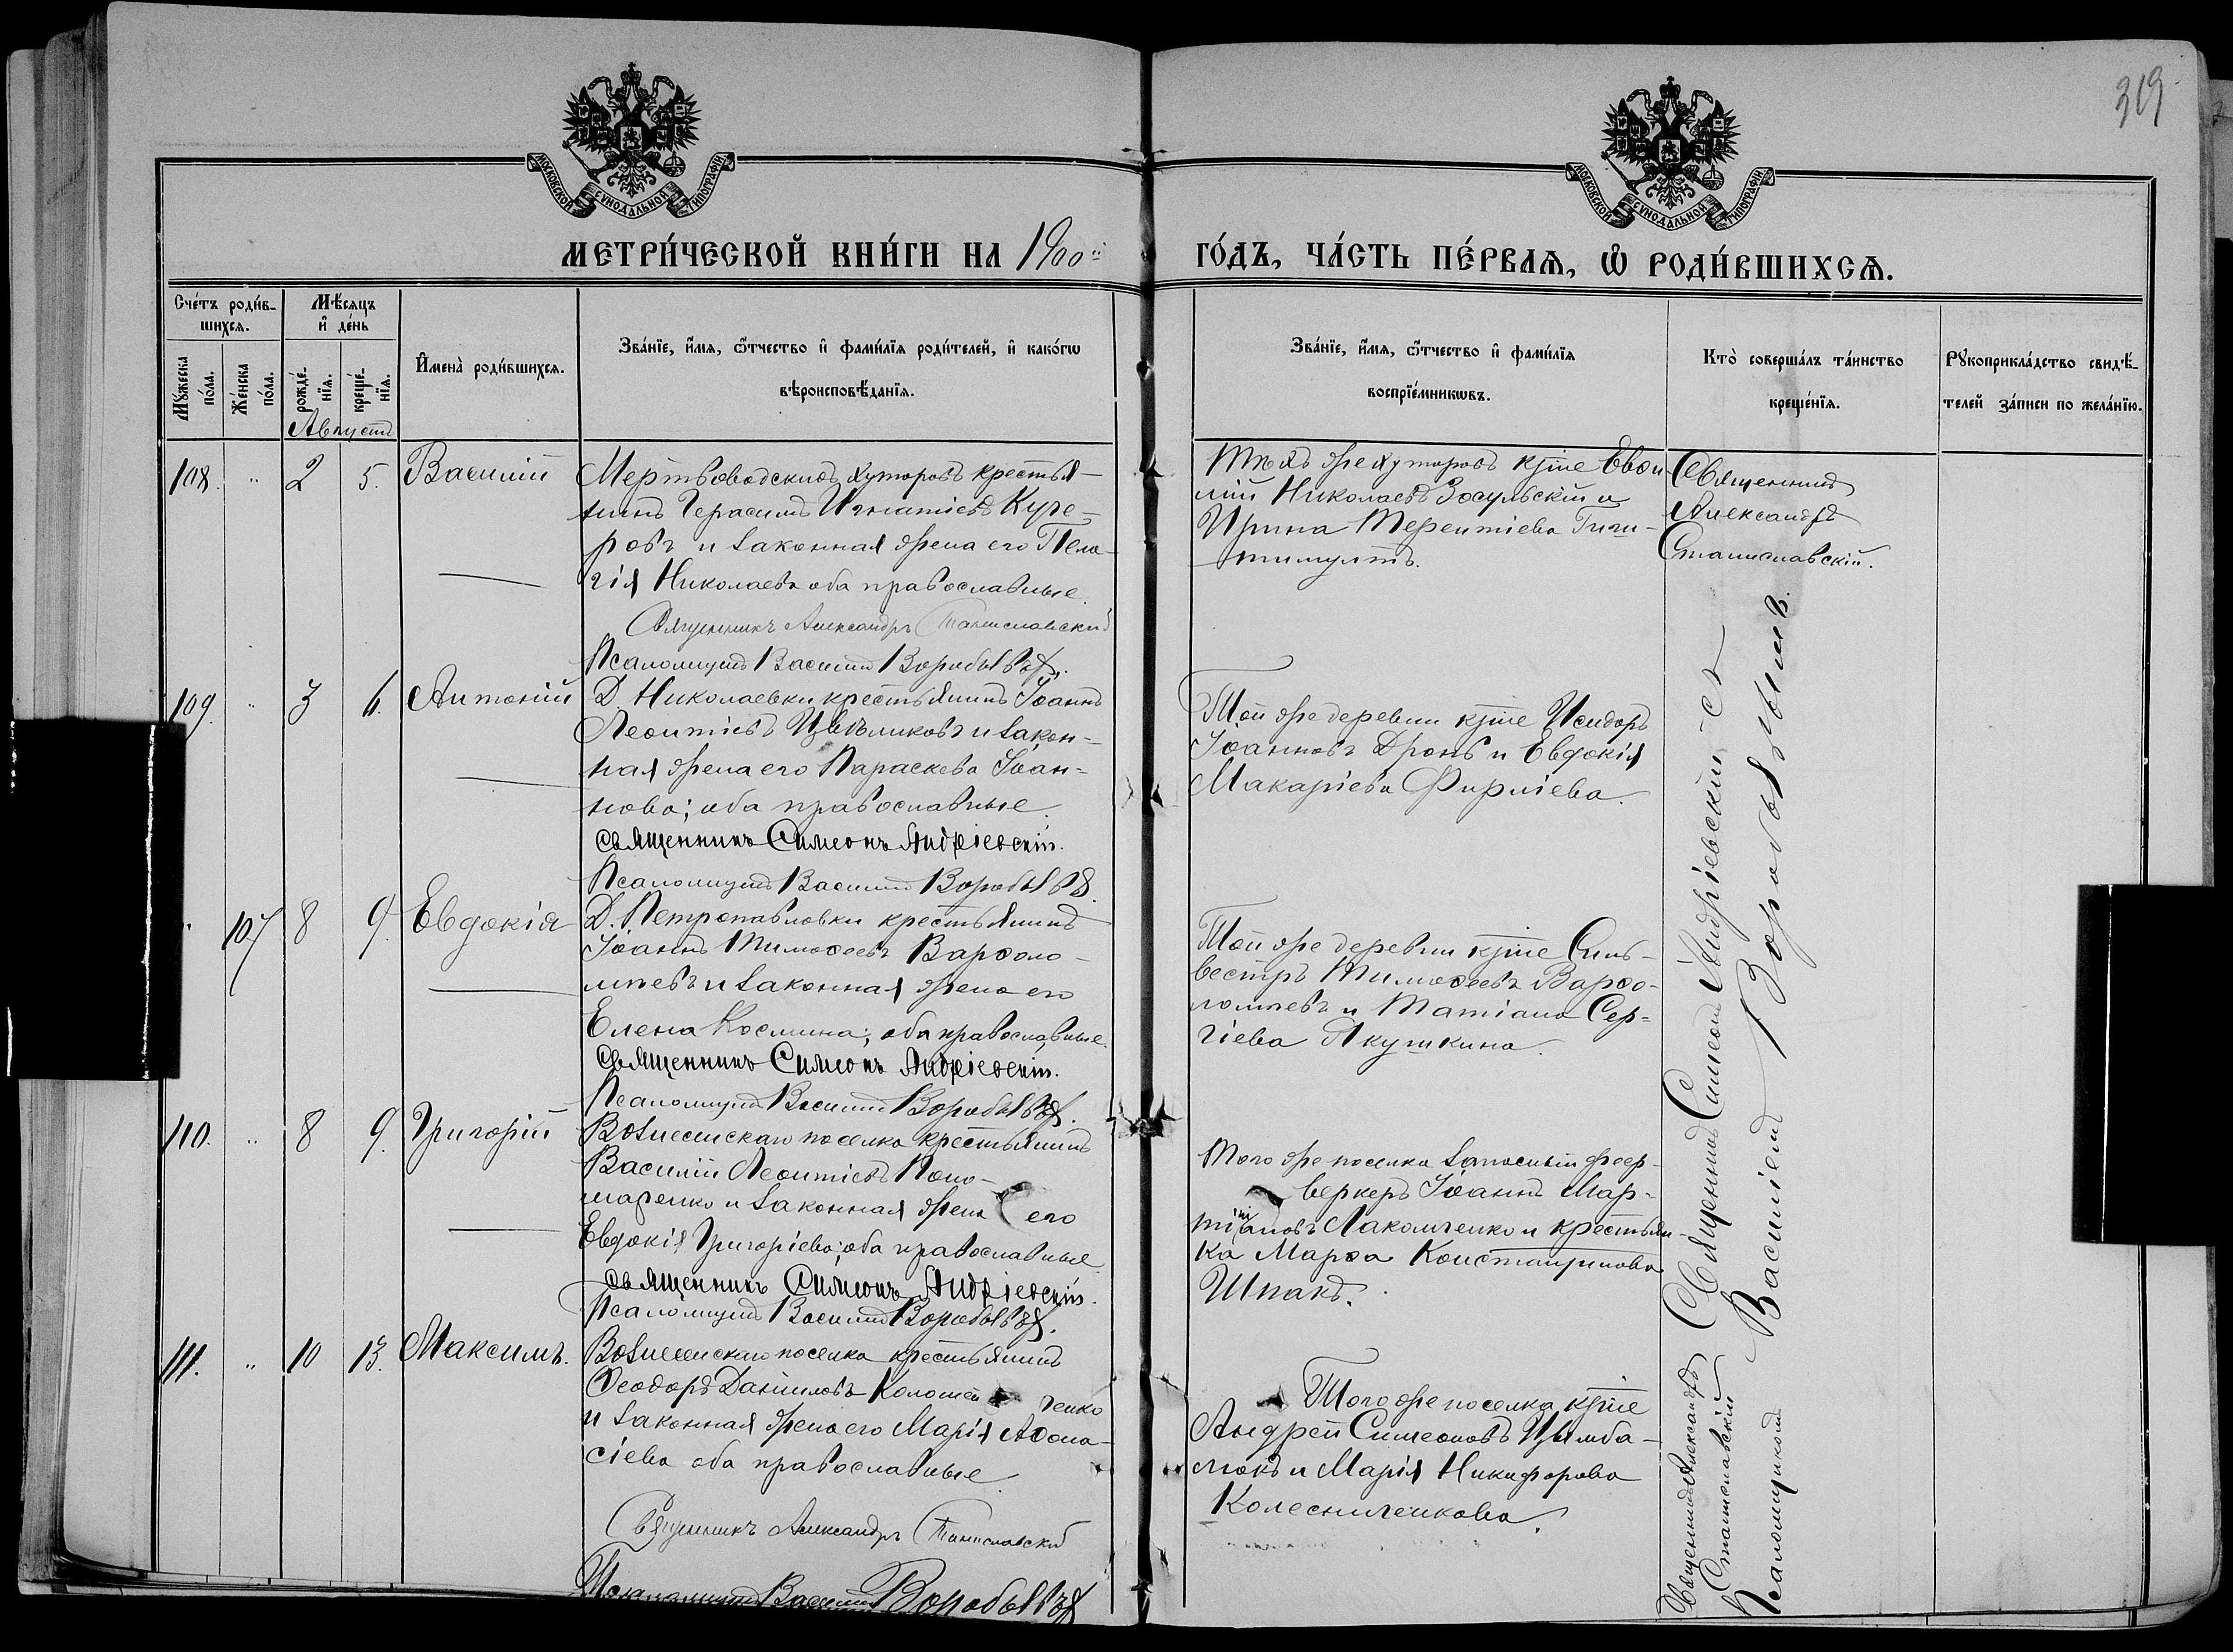 319
МОСКОВСКОЙ СѴНОДАЛЬНОЙ ТИПОГРАФІИ
МОСКОВСКОЙ СѴНОДАЛЬНОЙ ТИПОГРАФІИ
МЕТРИ́ЧЕСКОЙ КНИ́ГИ НА 1900й
ГО́ДЪ, ЧА́СТЬ ПЕ́РВАѦ, Ѡ РОДИ́ВШИХСѦ.
Сче́тъ роди́в-
шихсѧ.
Мꙋжеска
по́ла.
Же́нска
по́ла.
Мѣ́сѧцъ
и де́нь
рожде́-
нїѧ.
креще́-
нїѧ.
Имена̀ роди́вшихсѧ.
Зва́нїе, и́мѧ, ѻ́тчество и фами́лїѧ роди́телей, и како́гѡ
вѣроисповѣ́данїѧ.
Зва́нїе, и́мѧ, ѻ́тчество и фами́лїѧ
воспрїе́мникѡвъ.
Кто̀ соверша́лъ та́инство
креще́нїѧ.
Рꙋкоприкла́дство свидѣ́-
телей за́писи по жела́нїю.
Августъ
108. " 2 5. Василій
Мертвоводскихъ хуторовъ крестья-
нинъ Герасимъ Игнатіевъ Куче-
ровъ и законная жена его Пела-
гія Николаева оба православные.
Священникъ Александръ Станиславскій
Псаломщикъ Василій Воробьевъ.
Тѣхъ же хуторовъ кр͞не
лій Николаевъ Зосульскій и
Ирина Терентіева
Священникъ
Александръ
Станиславскій.
109. " 3 6. Антоній
Д. Николаевки крестьянинъ Іоаннъ
Леонтіевъ и закон-
ная жена его Параскева Іоан-
нова; оба православные.
Священникъ Симеонъ Андріевскій.
Псаломщикъ Василій Воробьевъ.
Той же деревни кр͞не Исидоръ
Іоанновъ Дронь и Евдокія
Макаріева Фирліева.
" 107 8 9. Евдокія
Д. Петропавловки крестьянинъ
Іоаннъ Тимоѳеевъ Варѳоло-
мѣевъ и законная жена его
Елена Космина; оба православные.
Священникъ Симеонъ Андріевскій.
Псаломщикъ Василій Воробьевъ.
Той же деревни кр͞не Силь-
вестръ Тимоѳеевъ Варѳо-
ломѣевъ и Татіана Сер-
гіева Якушкина.
110. " 8 9. Григорій
Вознесенскаго поселка крестьянинъ
Василій Леонтіевъ Поно-
маренко и законная жена его
Евдокія Григоріева; оба православные
Священникъ Симеонъ Андріевскій.
Псаломщикъ Василій Воробьевъ.
Того же поселка запасный феер-
веркеръ Іоаннъ Мар-
тиніановъ Лакомченко и крестьян-
ка Марѳа Константинова
Шпакъ.
111. " 10 13. Максимъ.
Вознесенскаго поселка крестьянинъ
Ѳеодоръ Даніиловъ Коломій ченко
и законная жена его Марія Аѳана-
сіева оба православные.
Священникъ Александръ Станиславскій
Псаломщикъ Василій Воробьевъ
Того же поселка кр͞не
Андрей Симеоновъ Цымба-
люкъ и Марія Никифорова
Колесниченкова.
Священникъ Александръ
Станиславскій
Священникъ Симеонъ Андріевскій съ
Псаломщикомъ Василіемъ Воробьевымъ.